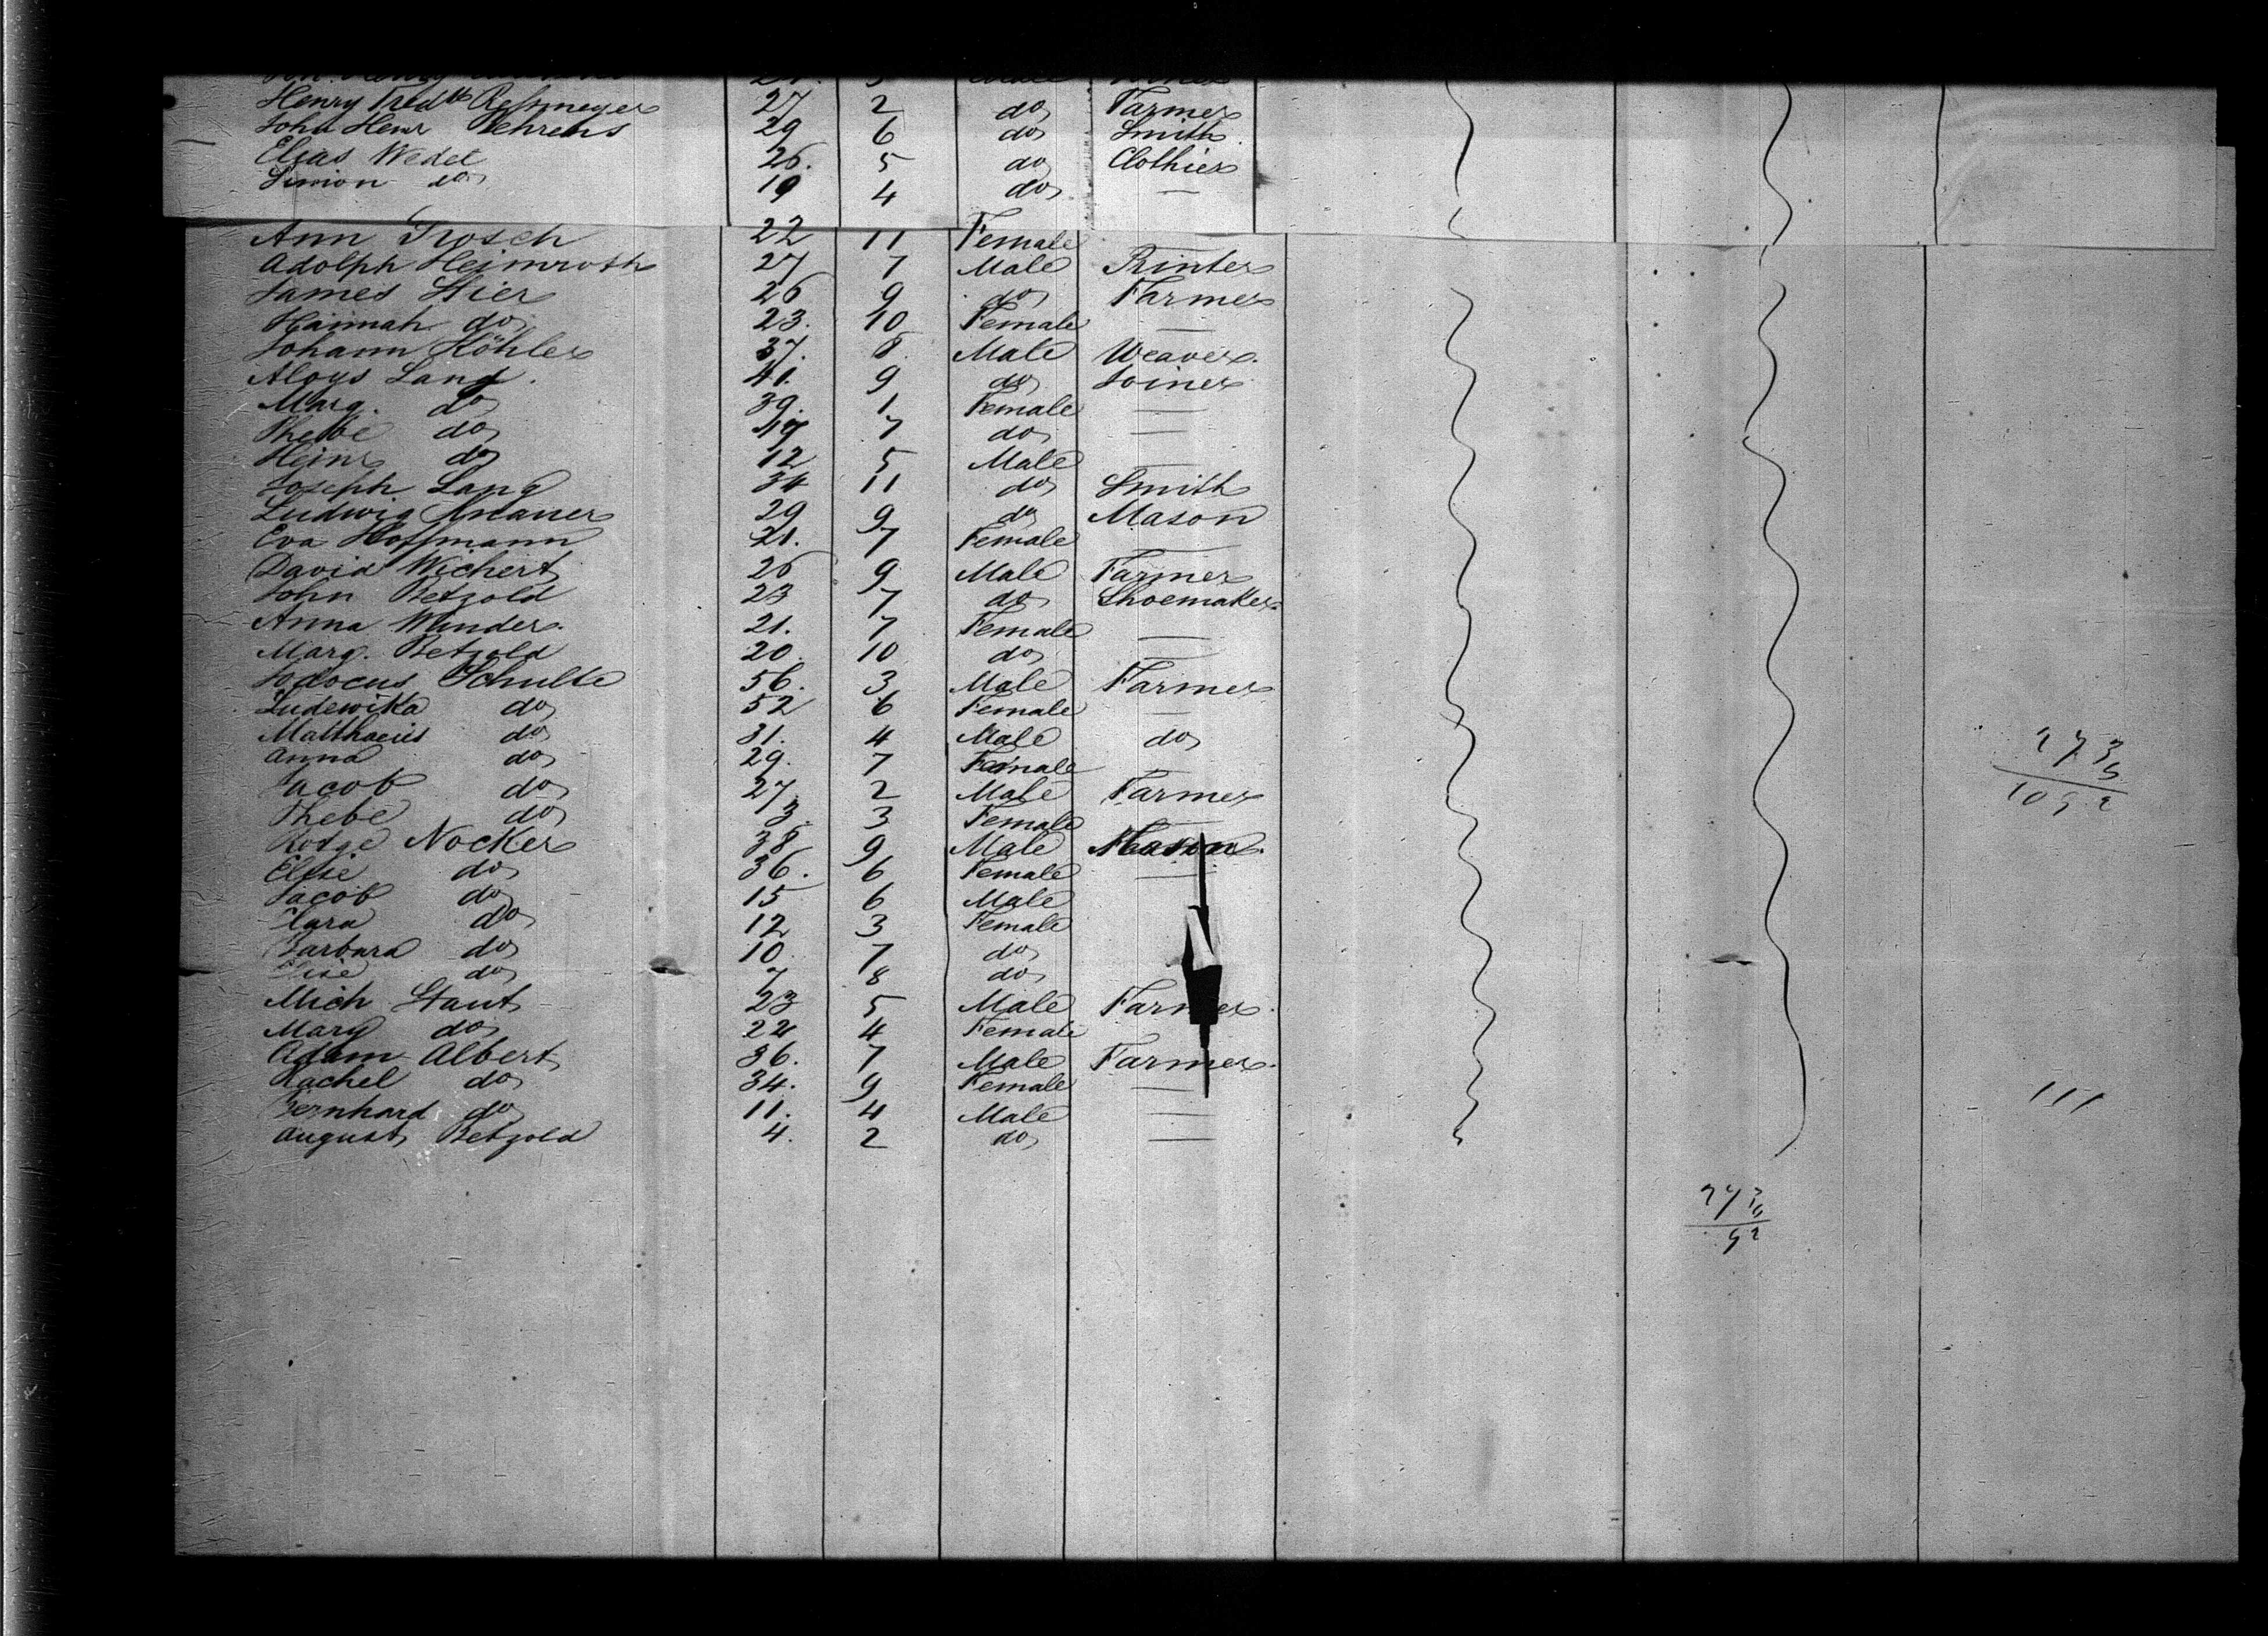 Henry Fredk Restmeyer 27 2 do Farmer
John Henr Behrens 29 6 do Smith
Elias Wedel 26. 5 do Clothier
Simon do 19 4 do —
Ann Trosch 22 11 Female
Adolph Heimroth 27 7 Male Printer
James Stier 26 9 do Farmer
Hannah do 23. 10 Female —
Johann Köhler 37. 8 Male Weaver.
Aloys Lang. 41. 9 do Joiner
Marg. do 39. 1 Female —
Phebe do 7 do —
Heinr do 12 5 Male —
Joseph Lang 34 11 do Smith
Ludwig 29 9 do Mason
Eva Hoffmann 21. 7 Female —
David Wichert 26 9 Male Farmer
John Betzold 23 7 do Shoemaker
Anna Wunder. 21. 7 Female —
Marg. Betzold 20. 10 do —
Jodocus Schulte 56. 3 Male Farmer
Ludewika do 52 6 Female —
Matthaeus do 31. 4 Male do
Anna do 29. 7 Female —
Jacob do 27. 2 Male Farmer
Phebe do 3. 3 Female —
Nocker 38 9 Male Mason.
Elsie do 36. 6 Female —
Jacob do 15 6 Male
Clara do 12 3 Female
Barbara do 10 7 do
do 7 8 do
Mich Staut 23 5 Male Farmer.
Mary do 22 4 Female
Adam Albert 36. 7 Male Farmer.
Rachel do 34. 9 Female —
Bernhard do 11. 4 Male —
August Betzold 4. 2 do —